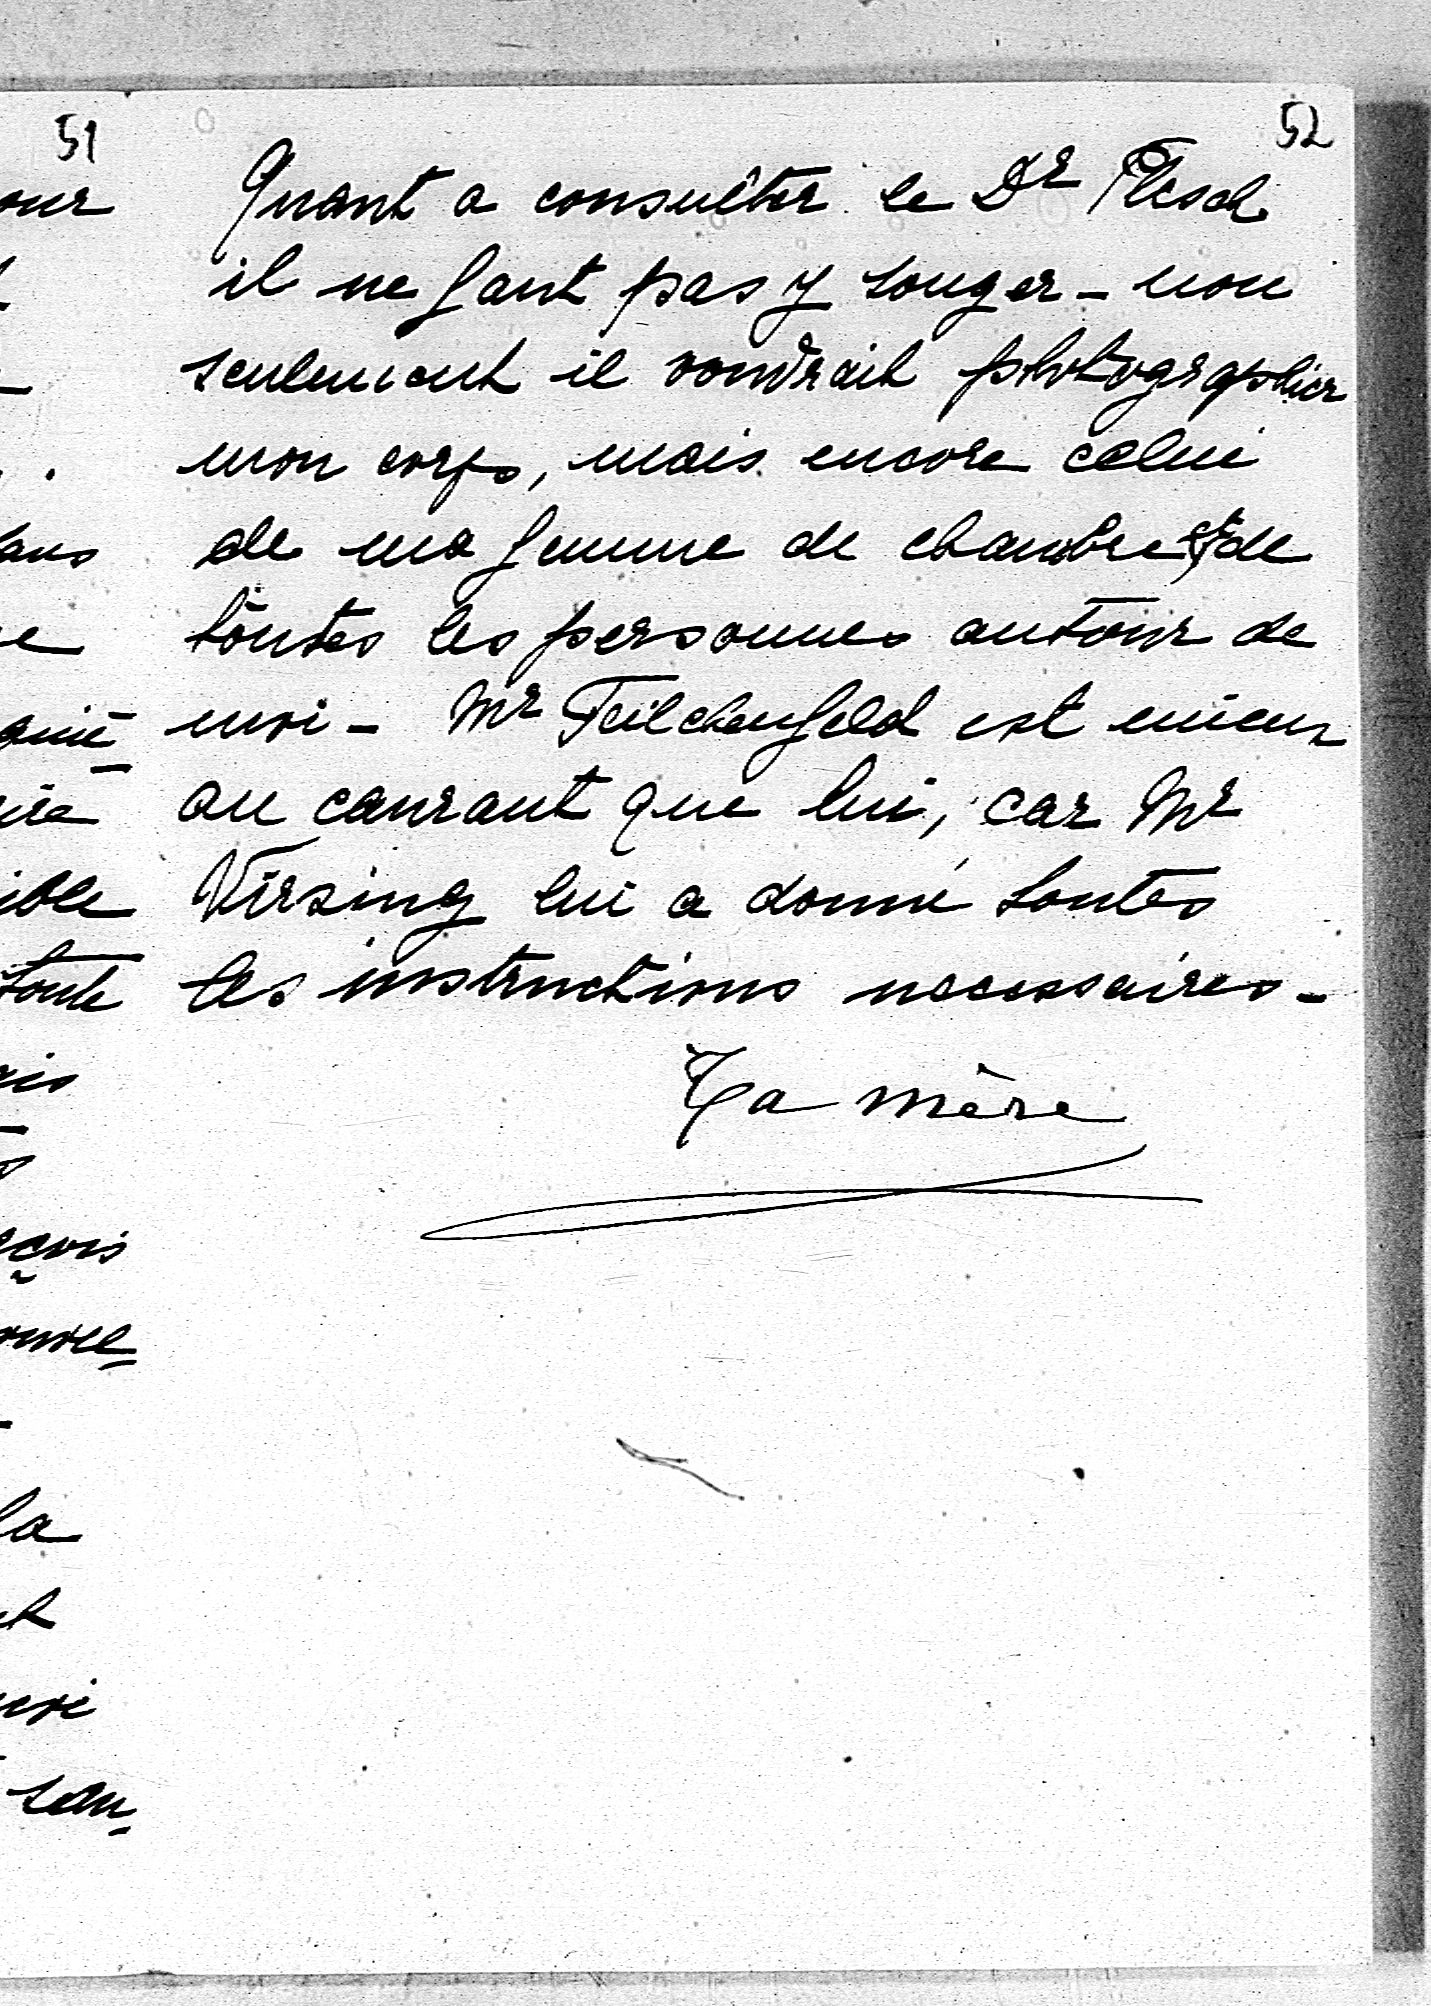 51
our
ans
e
ible
toute
çois
la
52
Quant a consulter le Dr Plesch
il ne faut pas y songer - non
seulement il voudrait photographier
mon corps, mais encore celui
de ma femme de chambre et de
toutes les personnes autour de
moi - Mr Feilchenfeld est mieux
au courant que lui, car Mr
Virsing lui a donné toutes
les instructions necessaires -
Ta mère